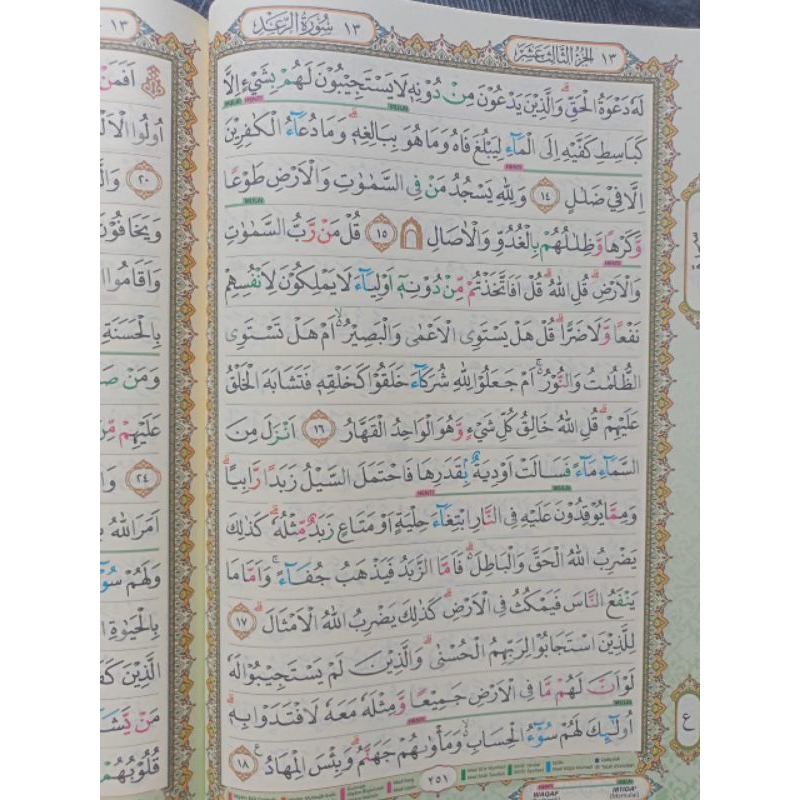 ١٣ سُوْرَةُ الرَّعْدِ ١٣ الجُزْءُ الثَّالِثَ عَشَرَ
لَهٗ دَعْوَةُ الْحَقِّۗ وَالَّذِيْنَ يَدْعُوْنَ مِنْ دُوْنِهٖ لَا يَسْتَجِيْبُوْنَ لَهُمْ بِشَيْءٍ اِلَّا
كَبَاسِطِ كَفَّيْهِ اِلَى الْمَاۤءِ لِيَبْلُغَ فَاهُ وَمَا هُوَ بِبَالِغِهٖۗ وَمَا دُعَاۤءُ الْكٰفِرِيْنَ
اِلَّا فِيْ ضَلٰلٍ ١٤ وَلِلّٰهِ يَسْجُدُ مَنْ فِى السَّمٰوٰتِ وَالْاَرْضِ طَوْعًا
وَّكَرْهًا وَّظِلٰلُهُمْ بِالْغُدُوِّ وَالْاٰصَالِ ١٥ قُلْ مَنْ رَّبُّ السَّمٰوٰتِ
وَالْاَرْضِۗ قُلِ اللّٰهُ ۗقُلْ اَفَاتَّخَذْتُمْ مِّنْ دُوْنِهٖٓ اَوْلِيَاۤءَ لَا يَمْلِكُوْنَ لِاَنْفُسِهِمْ
نَفْعًا وَّلَا ضَرًّاۗ قُلْ هَلْ يَسْتَوِى الْاَعْمٰى وَالْبَصِيْرُ ەۙ اَمْ هَلْ تَسْتَوِى
الظُّلُمٰتُ وَالنُّوْرُ ەۚ اَمْ جَعَلُوْا لِلّٰهِ شُرَكَاۤءَ خَلَقُوْا كَخَلْقِهٖ فَتَشَابَهَ الْخَلْقُ
عَلَيْهِمْۗ قُلِ اللّٰهُ خَالِقُ كُلِّ شَيْءٍ وَّهُوَ الْوَاحِدُ الْقَهَّارُ ١٦ اَنْزَلَ مِنَ
السَّمَاۤءِ مَاۤءً فَسَالَتْ اَوْدِيَةٌ ۢ بِقَدَرِهَا فَاحْتَمَلَ السَّيْلُ زَبَدًا رَّابِيًاۗ
وَمِمَّا يُوْقِدُوْنَ عَلَيْهِ فِى النَّارِ ابْتِغَاۤءَ حِلْيَةٍ اَوْ مَتَاعٍ زَبَدٌ مِّثْلُهٗ ۗ كَذٰلِكَ
يَضْرِبُ اللّٰهُ الْحَقَّ وَالْبَاطِلَ ەۗ فَاَمَّا الزَّبَدُ فَيَذْهَبُ جُفَاۤءً ۚ وَاَمَّا مَا
يَنْفَعُ النَّاسَ فَيَمْكُثُ فِى الْاَرْضِۗ كَذٰلِكَ يَضْرِبُ اللّٰهُ الْاَمْثَالَ ۗ ١٧
لِلَّذِيْنَ اسْتَجَابُوْا لِرَبِّهِمُ الْحُسْنٰىۗ وَالَّذِيْنَ لَمْ يَسْتَجِيْبُوْا لَهٗ
لَوْ اَنَّ لَهُمْ مَّا فِى الْاَرْضِ جَمِيْعًا وَّمِثْلَهٗ مَعَهٗ لَافْتَدَوْا بِهٖ ۗ
اُولٰۤىِٕكَ لَهُمْ سُوْۤءُ الْحِسَابِ ەۙ وَمَأْوٰىهُمْ جَهَنَّمُ ۗوَبِئْسَ الْمِهَادُ ࣖ ١٨
٢٥١
ع
١٣
اَفَمَنْ
اُولُوا الْاَلْ
٢٠
وَيَخَافُوْنَ
وَاَقَامُوا
بِالْحَسَنَةِ
وَمَنْ
عَلَيْهِمْ
٢٤
اَمَرَ اللّٰهُ
وَلَهُمْ سُوْۤءُ
بِالْحَيٰوةِ
الَّذِيْنَ
مَنْ
قُلُوْبُهُمْ